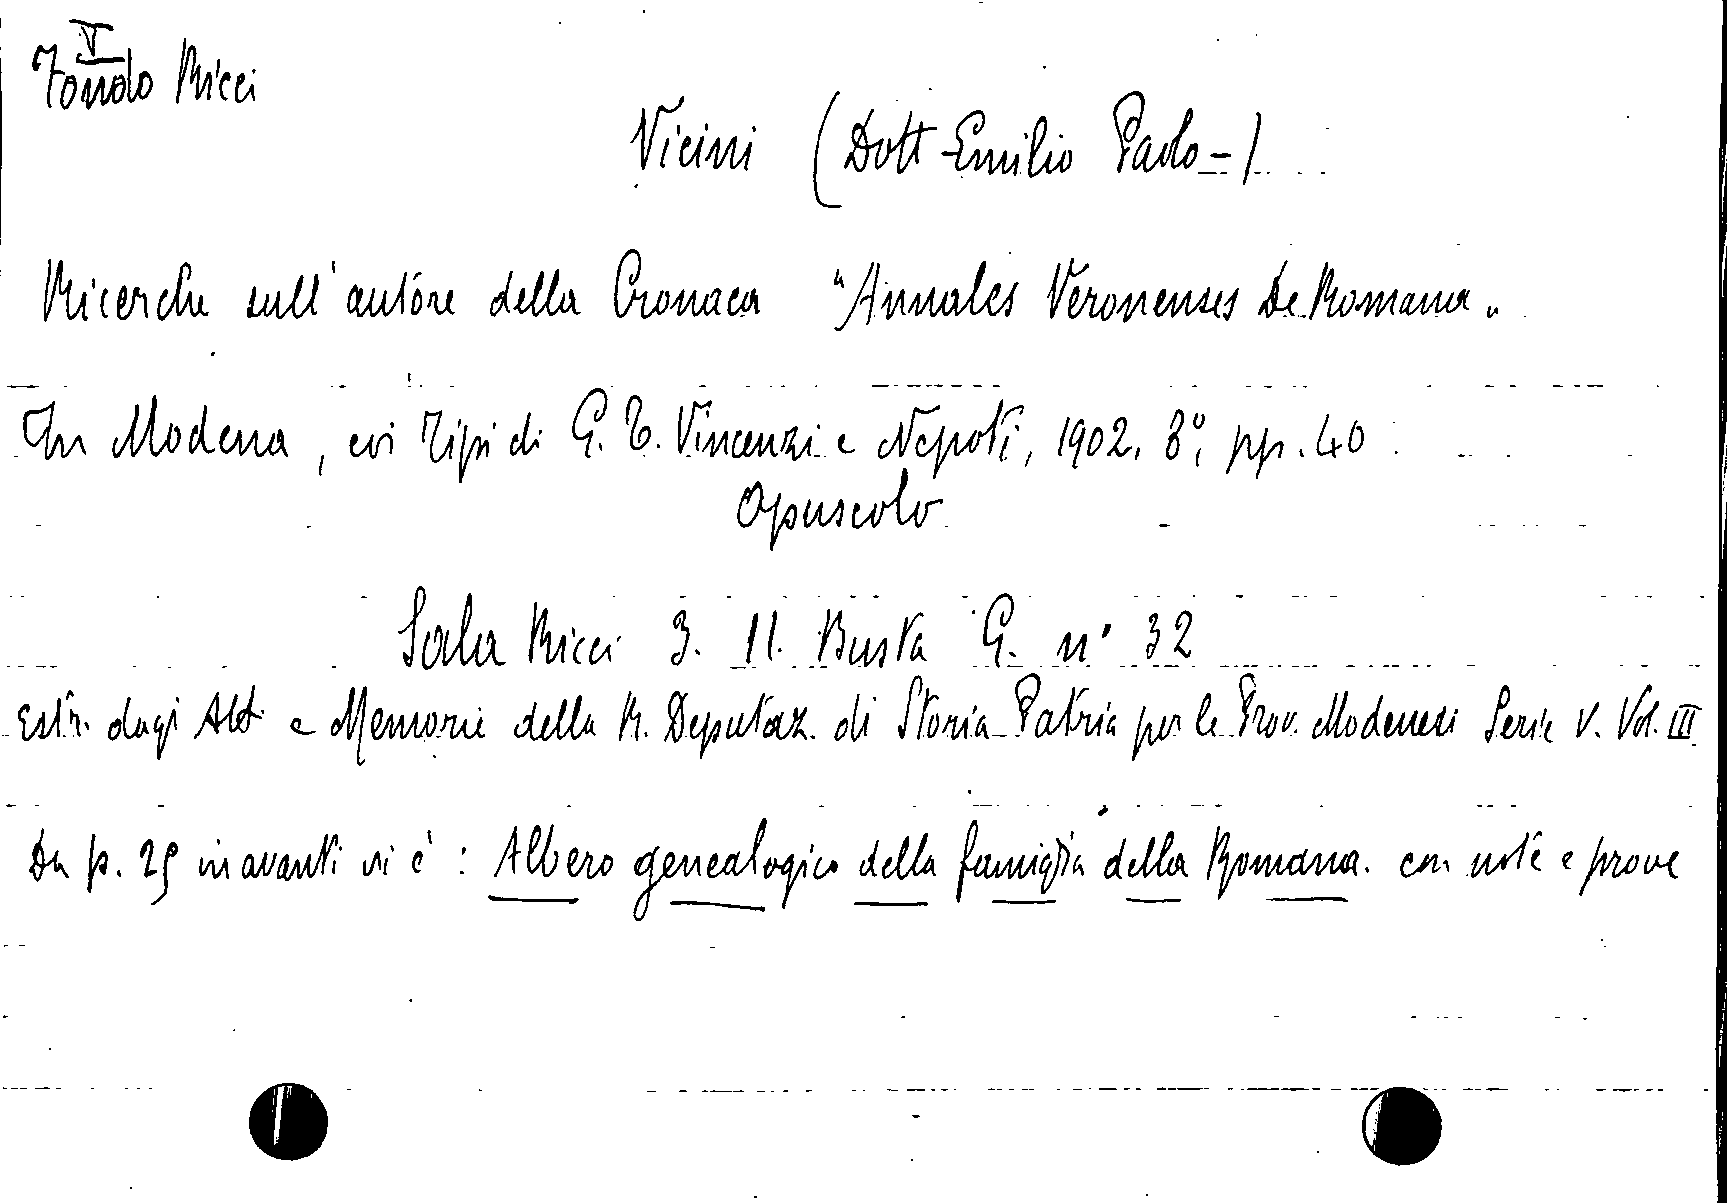 V
Fondo Ricci
Vicini (Dott Emilio Paolo-)
Ricerche sull'autore della Cronaca "Annales Veronenses De Romana"
In Modena, coi Tipi di G. T. Vincenzi e Nepoti, 1902. 8°, pp. 40
Opuscolo
Sala Ricci 3. 11. Busta G. n° 32
Estr. dagi Atti e Memorie della R. Deputaz. di Storia Patria per le Prov. Modenesi Serie V. Vol. III
Da p. 29 in avanti vi è : Albero genealogico della famiglia della Romana. con note e prove